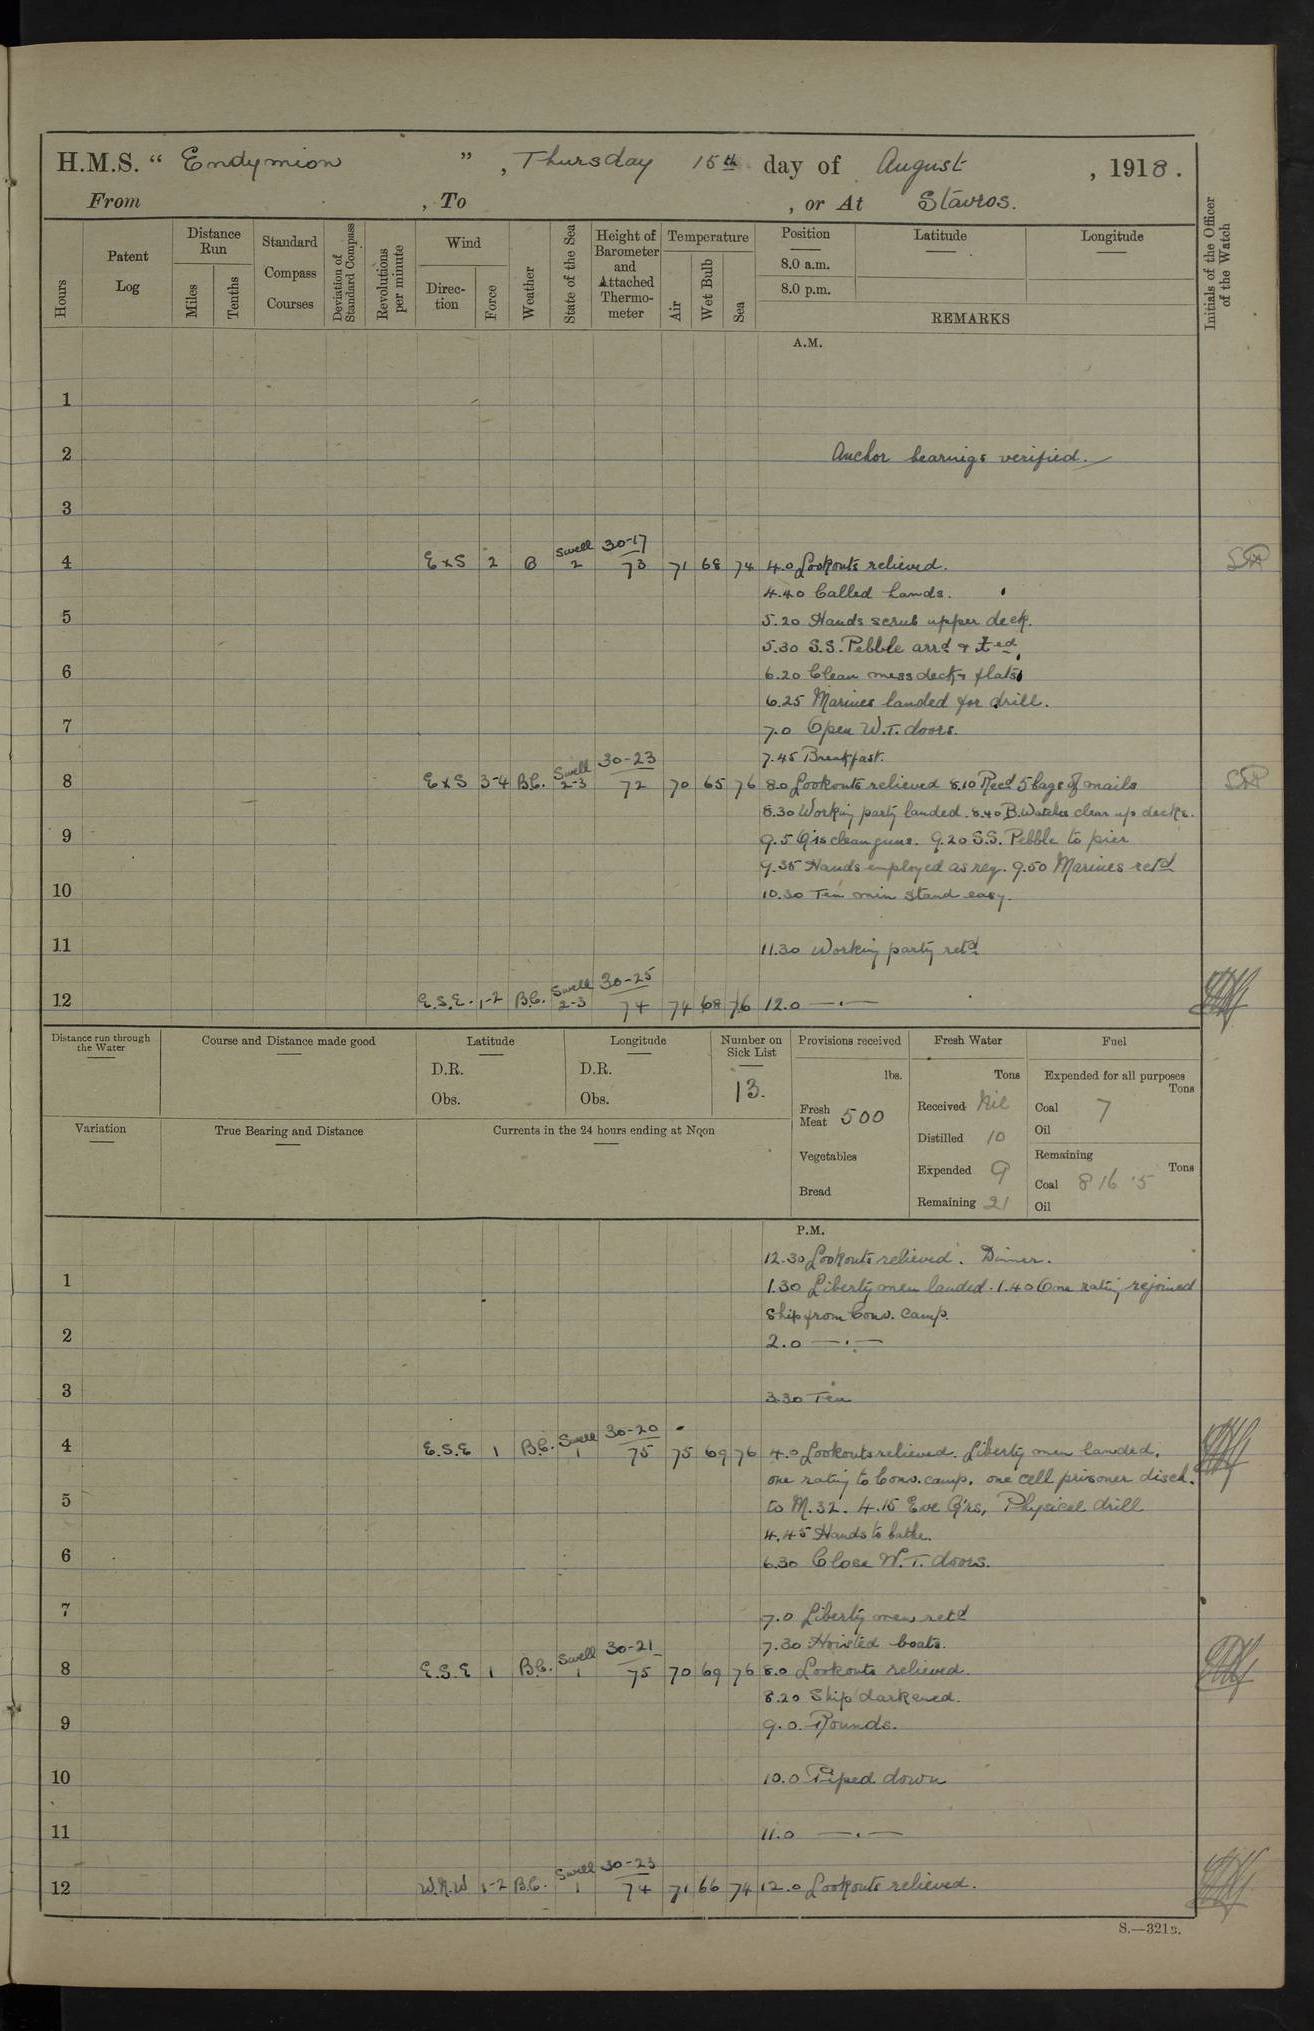 H.M.S. “ Endymion ”, Thursday 15th day of August, 1918.
From , To , or At Stavros.
Hours
Patent Log
Distance Run
Miles
Tenths
Standard Compass Courses
Deviation of Standard Compass
Revolutions per minute
Wind
Direction
Force
Weather
State of the Sea
Height of Barometer and Attached Thermometer
Temperature
Air
Wet Bulb
Sea
Position
8.0 a.m.
8.0 p.m.
Latitude
Longitude
REMARKS
Initials of the Officer of the Watch
A.M.
1
2 Anchor bearings verified.
3
Swell 30-17
4 E x S 2 B 2 73 71 68 74 4.0 Lookouts relieved.
4.40 Called hands.
5 5.20 Hands scrub upper deck.
5.30 S.S. Pebble arrd &
6 6.20 Clean mess deck & flats
6.25 Marines landed for drill.
7 7.0 Open W.T. doors.
7.45 Breakfast.
Swell 30-23
8 E x S 3-4 B.C. 2-3 72 70 65 76 8.0 Lookouts relieved 8.10 Recd 5 bags of mails
8.30 Working party landed. 8.40 B. Watches clear up decks.
9 9.5 Qrs clean guns. 9.20 S.S. Pebble to pier
9.35 Hands employed as req. 9.50 Marines retd
10 10.30 Ten min stand easy.
11 11.30 Working party retd
Swell 30-25
12 E.S.E. 1-2 B.C. 2-3 74 74 68 76 12.0 —.—
Distance run through the Water
Course and Distance made good
Latitude
D.R.
Obs.
Longitude
D.R.
Obs.
Number on Sick List
13.
Provisions received
lbs.
Fresh Meat 500
Vegetables
Bread
Fresh Water
Tons
Received Nil
Distilled 10
Expended 9
Remaining 21
Fuel
Expended for all purposes
Tons
Coal 7
Oil
Remaining
Tons
Coal 816.5
Oil
Variation
True Bearing and Distance
Currents in the 24 hours ending at Noon
P.M.
12.30 Lookouts relieved. Dinner.
1 1.30 Liberty men landed. 1.40 One rating rejoined
Ship from Conv. camp.
2 2.0 —.—
3 3.30 Tea
Swell 30-20
4 E.S.E 1 B.C. 1 75 75 69 76 4.0 Lookouts relieved. Liberty men landed,
one rating to Conv. camp, one cell prisoner disch.
5 to M.32. 4.15 Eve Qrs, Physical drill
4.45 Hands to bathe.
6 6.30 Close W.T. doors.
7 7.0 Liberty men retd
7.30 Hoisted boats.
Swell 30-21
8 E.S.E 1 B.C. 1 75 70 69 76 8.0 Lookouts relieved.
8.20 Ship darkened.
9 9.0. Rounds.
10 10.0 Piped down
11 11.0 —.—
Swell 30-23
12 W.N.W 1-2 B.C. 1 74 71 66 74 12.0 Lookouts relieved.
S.—321B.